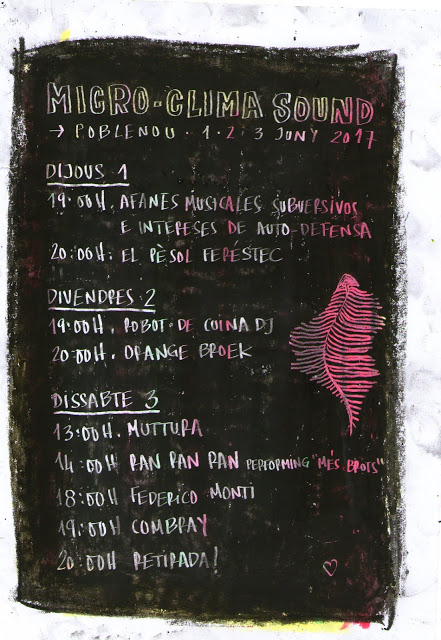 MICRO-CLIMA SOUND
→ POBLENOU · 1 · 2 · 3 JUNY 2017
DIJOUS 1
19:00H. AFANES MUSICALES SUBVERSIVOS
E INTERESES DE AUTO-DEFENSA
20:00H. EL PÈSOL FERÉSTEC
DIVENDRES · 2
19:00H. ROBOT DE CUINA DJ
20:00H. ORANGE BROEK
DISSABTE 3
13:00H. MUTTURA
14:00H RAN RAN RAN PERFORMING "MÉS BROTS"
18:00H FEDERICO MONTI
19:00H COMBRAY
20:00H RETIRADA!